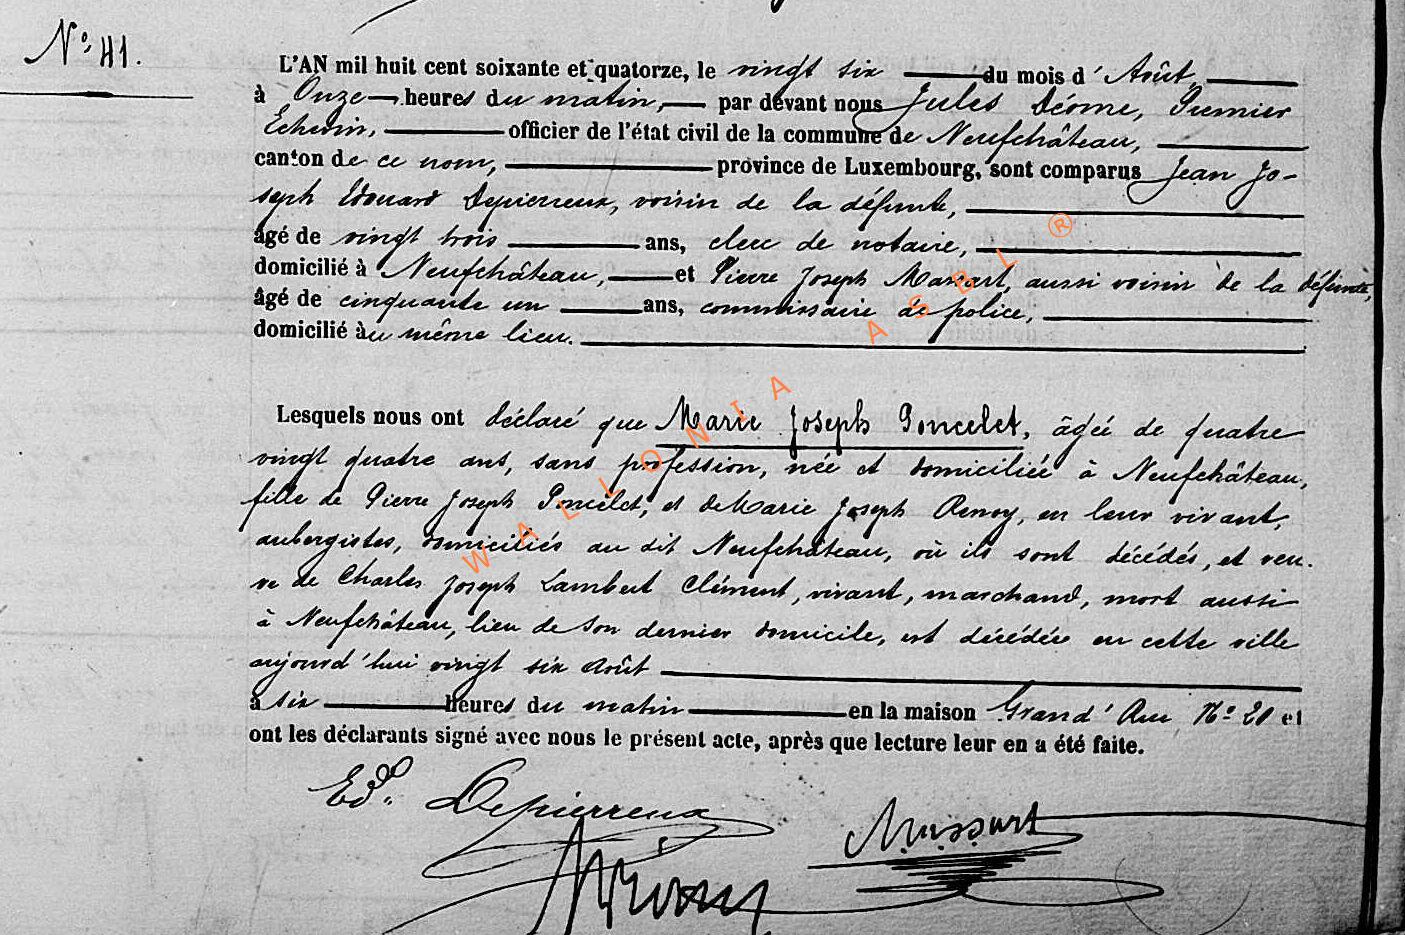 N° 41.
L'AN mil huit cent soixante et quatorze, le vingt six du mois d'Août,
à Onze heures du matin, par devant nous Jules Déome, Premier
Echevin, officier de l'état civil de la commune de Neufchâteau,
canton de ce nom, province de Luxembourg, sont comparus Jean Jo-
seph Edouard Depierreux, voisin de la défunte,
âgé de vingt trois ans, clerc de notaire,
domicilié à Neufchâteau, et Pierre Joseph Massart, aussi voisin de la défunte,
âgé de cinquante un ans, commissaire de police,
domicilié àu même lieu.
Lesquels nous ont déclaré que Marie Joseph Poncelet, âgée de quatre
vingt quatre ans, sans profession, née et domiciliée à Neufchâteau,
fille de Pierre Joseph Poncelet, et de Marie Joseph Renoy, en leur vivant,
aubergistes, domiciliés au dit Neufchâteau, où ils sont décédés, et veu-
ve de Charles Joseph Lambert Clément, vivant, marchand, mort aussi
à Neufchâteau, lieu de son dernier domicile, est décédée en cette ville
aujourd'hui vingt six Août
à six heures du matin en la maison Grand'Rue N° 20 et
ont les déclarants signé avec nous le présent acte, après que lecture leur en a été faite.
Ed. Depierreux
Massart
WALLONIA ASBL ®